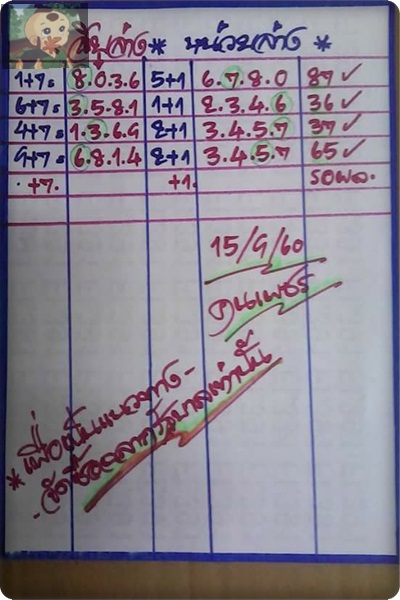 สิบล่าง * หน่วยล่าง *
1+7= 8.0.3.6 5+1 6.7.8.0 87 ✓
6+7= 3.5.8.1 1+1 2.3.4.6 36 ✓
4+7= 1.3.6.9 2+1 3.4.5.7 37 ✓
9+7= 6.8.1.4 2+1 3.4.5.7 65 ✓
+7. +1. รอผล.
15/9/60
คนเพชร
* เพื่อเป็นแนวทาง-
- จัดซื้อฉลากรัฐบาลเท่านั้น